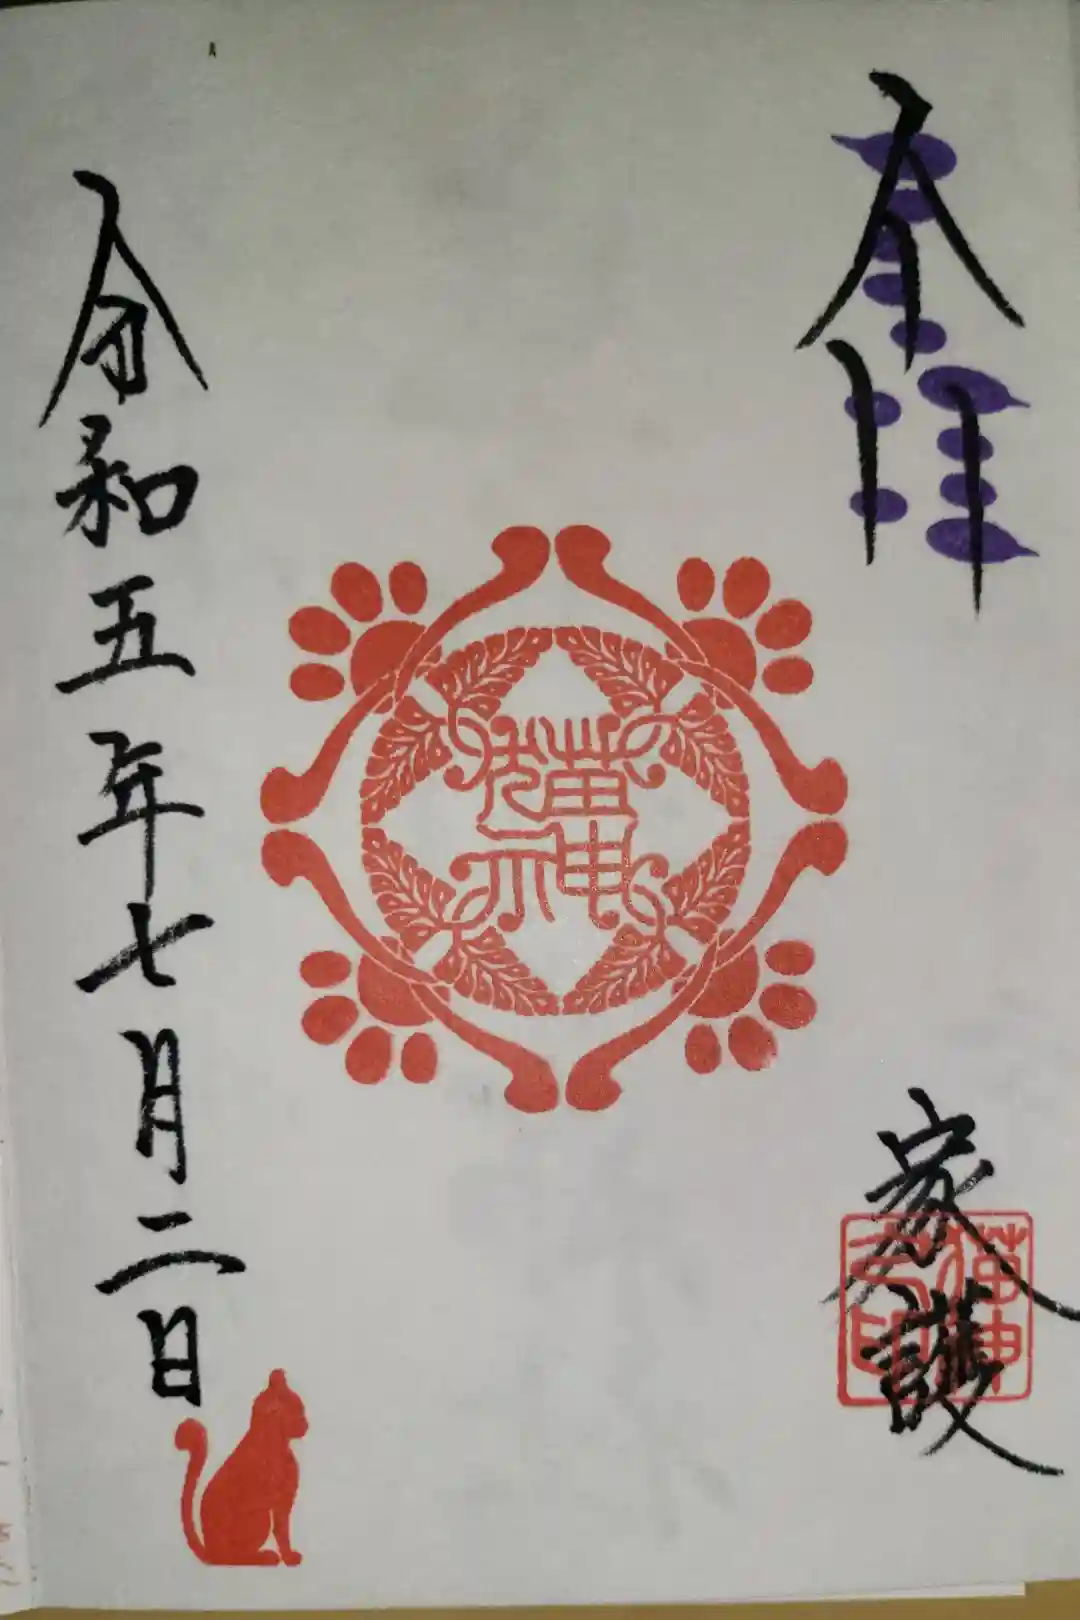 奉拝
家護
猫神
猫神
令和五年七月二日